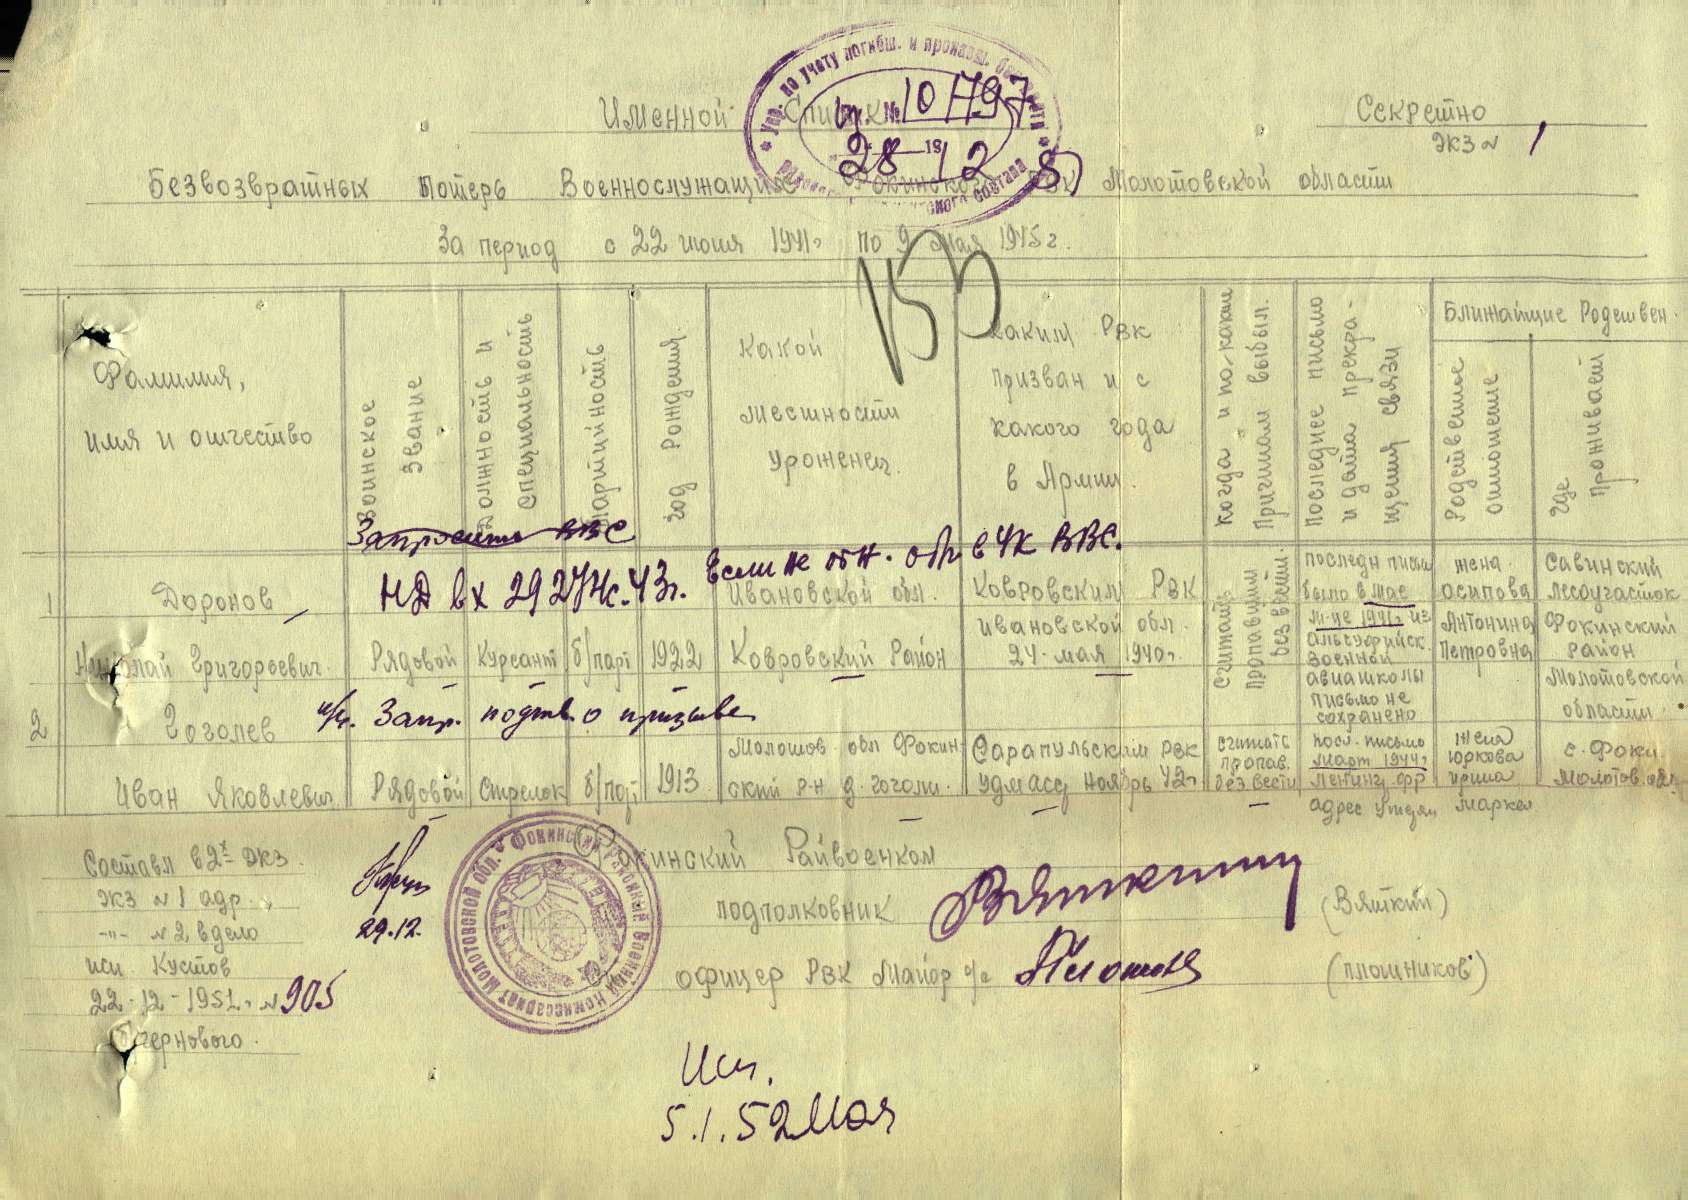 Именной Список
Секретно
экз № 1
Упр. по учету погибш. и пропавш. без вести
рядового и сержантского состава
Вх. № 101797
28 19 12 51
Безвозвратных Потерь Военнослужащих Фокинского РВК Молотовской области
За период с 22 июня 1941г по 9 мая 1945г.
153
Фамилия,
имя и отчество
Воинское
Звание
Должность и
Специальность
Партийность
год рождения
какой
местности
уроженец.
каким РВК
призван и с
какого года
в Армии.
когда и по каким
Причинам выбыл.
Последнее письмо
и дата прекра-
щения связи
Ближайшие Родствен.
Родственное
отношение
где
Проживает
Запросить ВВС
НД вх 29274с.43г. Если не обн. обр в ЧК ВВС.
1 Доронов
Николай Григорьевич.
Рядовой
Курсант
б/парт
1922
Ивановской обл.
Ковровский Район
Ковровским РВК
Ивановской обл.
24 мая 1940г.
Считать
пропавшим
без вести.
последн письм
было в мае
м-це 1941г из
военной
авиашколы
письмо не
сохранено
жена.
осипова
Антонина
Петровна
Савинский
лесоучасток
Фокинский
район
Молотовской
области
и/ч. Запр. подтв. о призыве
2 Гоголев
Иван Яковлевич
Рядовой
Стрелок
б/парт
1913
Молотов обл Фокин-
ский р-н д. гоголи.
Сарапульским РВК
удмасср ноябрь 42г
считать
пропав.
без вести
посл. письмо
март 1944г
Ленингр. фр
адрес утерян
Жена
Юркова
ирина
Маркел.
с. Фоки
Молотов. обл.
Составл в 2х экз.
экз № 1 адр.
-"- № 2 в дело
исп Кустов
22-12-1951г № 905
б/чернового.
29.12.
Фокинский Районный Военный Комиссариат Молотовской обл.
Фокинский Райвоенком
подполковник
Вяткин
(Вяткин)
офицер РВК Майор а/с
(плотников)
Исп.
5.1.52